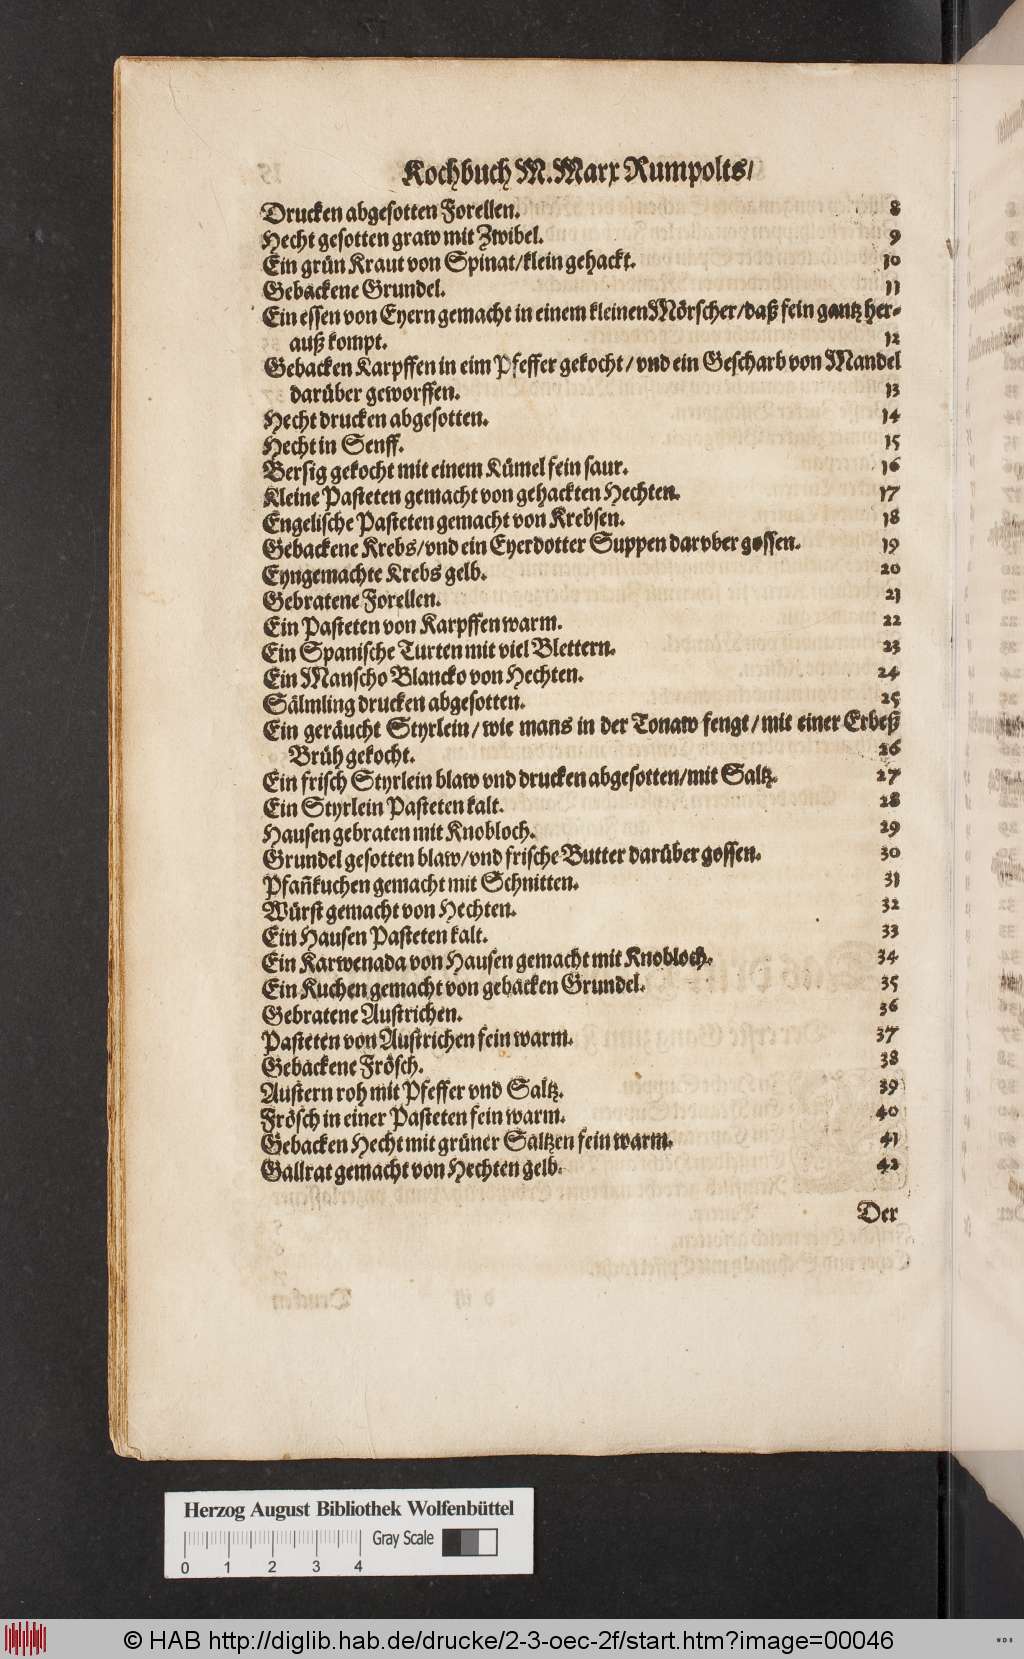 Kochbuch M. Marx Rumpolts/
Drucken abgesotten Forellen. 8
Hecht gesotten graw mit Zwibel. 9
Ein grün Kraut von Spinat/klein gehackt. 10
Gebackene Grundel. 11
Ein essen von Eyern gemacht in einem kleinen Mörscher/daß fein gantz her-
auß kompt. 12
Gebacken Karpffen in eim Pfeffer gekocht/ vnd ein Gescharb von Mandel
darüber geworffen. 13
Hecht drucken abgesotten. 14
Hecht in Senff. 15
Bersig gekocht mit einem Kümel fein saur. 16
Kleine Pasteten gemacht von gehackten Hechten. 17
Engelische Pasteten gemacht von Krebsen. 18
Gebackene Krebs/vnd ein Eyerdotter Suppen darvber gossen. 19
Eyngemachte Krebs gelb. 20
Gebratene Forellen. 21
Ein Pasteten von Karpffen warm. 22
Ein Spanische Turten mit viel Blettern. 23
Ein Manscho Blancko von Hechten. 24
Sälmling drucken abgesotten. 25
Ein geräucht Styrlein/ wie mans in der Tonaw fengt/ mit einer Erbeß
Brüh gekocht. 26
Ein frisch Styrlein blaw vnd drucken abgesotten/mit Saltz. 27
Ein Styrlein Pasteten kalt. 28
Hausen gebraten mit Knobloch. 29
Grundel gesotten blaw/vnd frische Butter darüber gossen. 30
Pfañkuchen gemacht mit Schnitten. 31
Würst gemacht von Hechten. 32
Ein Hausen Pasteten kalt. 33
Ein Karwenada von Hausen gemacht mit Knobloch. 34
Ein Kuchen gemacht von gebacken Grundel. 35
Gebratene Austrichen. 36
Pasteten von Austrichen fein warm. 37
Gebackene Frösch. 38
Austern roh mit Pfeffer vnd Saltz. 39
Frösch in einer Pasteten fein warm. 40
Gebacken Hecht mit grüner Saltzen fein warm. 41
Gallrat gemacht von Hechten gelb. 42
Der
Herzog August Bibliothek Wolfenbüttel
Gray Scale
0 1 2 3 4
© HAB http://diglib.hab.de/drucke/2-3-oec-2f/start.htm?image=00046